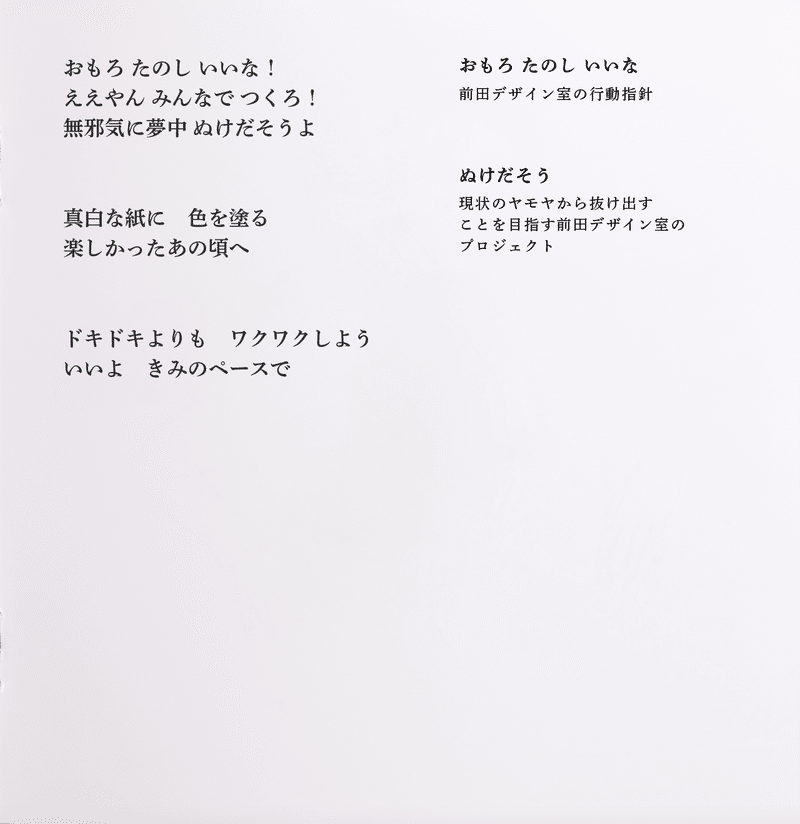 おもろ たのし いいな！
ええやん みんなで つくろ！
無邪気に夢中 ぬけだそうよ
真白な紙に　色を塗る
楽しかったあの頃へ
ドキドキよりも　ワクワクしよう
いいよ　きみのペースで
おもろ たのし いいな
前田デザイン室の行動指針
ぬけだそう
現状のヤモヤから抜け出す
ことを目指す前田デザイン室の
プロジェクト